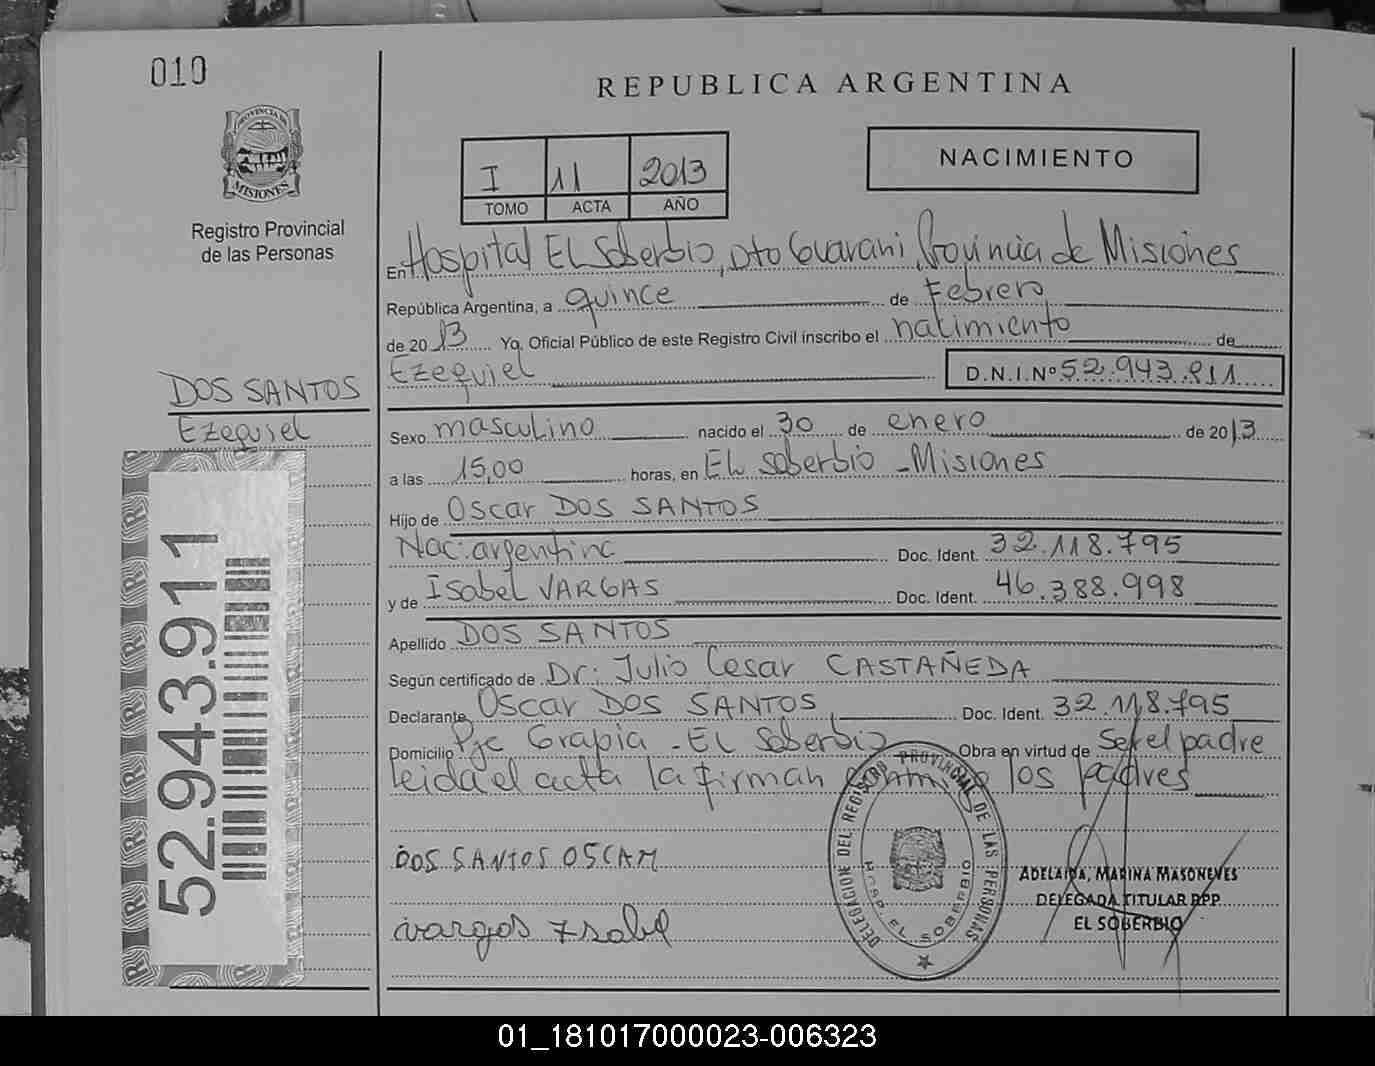 010
PROVINCIA DE
MISIONES
Registro Provincial
de las Personas
REPUBLICA ARGENTINA
I 11 2013
TOMO ACTA AÑO
NACIMIENTO
En Hospital EL Soberbio, Dto Guarani, Provincia de Misiones
República Argentina, a quince de Febrero
de 2013 Yo, Oficial Público de este Registro Civil inscribo el nacimiento de
Ezequiel D.N.I.Nº 52.943.911
DOS SANTOS
Ezequiel
52.943.911
Sexo masculino nacido el 30 de enero de 2013
a las 15,00 horas, en EL Soberbio - Misiones
Hijo de Oscar DOS SANTOS
Nac: argentina Doc. Ident. 32.118.795
y de Isabel VARGAS Doc. Ident. 46.388.998
Apellido DOS SANTOS
Según certificado de Dr: Julio Cesar CASTAÑEDA
Declarante Oscar DOS SANTOS, Doc. Ident. 32.118.795
Domicilio Pje Grapia - EL Soberbio Obra en virtud de ser el padre
Leida el acta la firman conmigo los padres
DOS SANTOS OSCAR
vargas Isabel
DELEGACION DEL REGISTRO PROVINCIAL DE LAS PERSONAS
HOSP. EL SOBERBIO
ADELAIDA, MARINA MASONEVES
DELEGADA TITULAR RPP
EL SOBERBIO
01_181017000023-006323